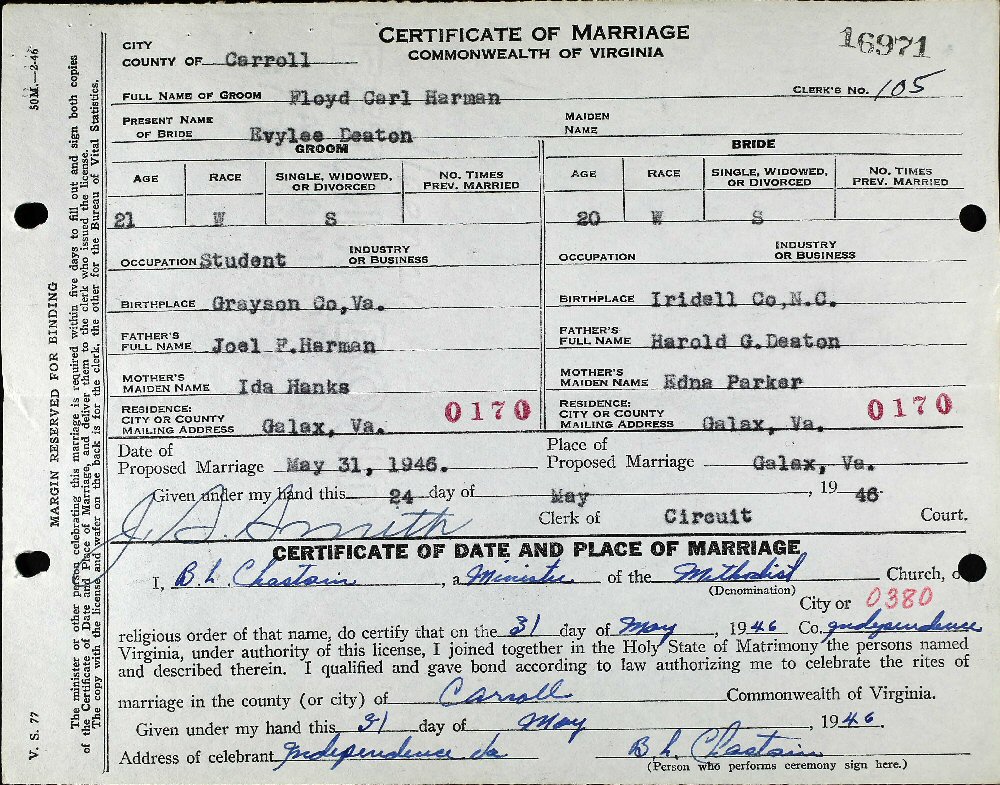 CERTIFICATE OF MARRIAGE
COMMONWEALTH OF VIRGINIA
16971
CITY
COUNTY OF Carroll
CLERK'S No. 105
FULL NAME OF GROOM Floyd Carl Harman
PRESENT NAME OF BRIDE Evylee Deaton MAIDEN NAME
GROOM BRIDE
AGE RACE SINGLE, WIDOWED, OR DIVORCED NO. TIMES PREV. MARRIED AGE RACE SINGLE, WIDOWED, OR DIVORCED NO. TIMES PREV. MARRIED
21 W S 20 W S
OCCUPATION Student INDUSTRY OR BUSINESS OCCUPATION INDUSTRY OR BUSINESS
BIRTHPLACE Grayson Co,Va. BIRTHPLACE Iridell Co,N.C.
FATHER'S FULL NAME Joel F.Harman FATHER'S FULL NAME Harold G.Deaton
MOTHER'S MAIDEN NAME Ida Hanks MOTHER'S MAIDEN NAME Edna Parker
RESIDENCE: CITY OR COUNTY MAILING ADDRESS Galax, Va. 0170 RESIDENCE: CITY OR COUNTY MAILING ADDRESS Galax, Va. 0170
Date of Proposed Marriage May 31, 1946. Place of Proposed Marriage Galax, Va.
Given under my hand this 24 day of May, 19 46.
J. S. Smith Clerk of Circuit Court.
CERTIFICATE OF DATE AND PLACE OF MARRIAGE
I, B. L. Chastain, a Ministe of the Methodist Church, o
(Denomination)
City or 0380
religious order of that name, do certify that on the 31 day of May, 1946 Co. Independence
Virginia, under authority of this license, I joined together in the Holy State of Matrimony the persons named
and described therein. I qualified and gave bond according to law authorizing me to celebrate the rites of
marriage in the county (or city) of Carroll Commonwealth of Virginia.
Given under my hand this 31 day of May, 1946.
Address of celebrant Independence Va B. L. Chastain
(Person who performs ceremony sign here.)
50M.—2-46
MARGIN RESERVED FOR BINDING
V. S. 77
The minister or other person celebrating this marriage is required within five days to fill out and sign both copies
of the Certificate of Date and Place of Marriage, and deliver them to the clerk who issued the license.
The copy with the license and wafer on the back is for the clerk, the other for the Bureau of Vital Statistics.